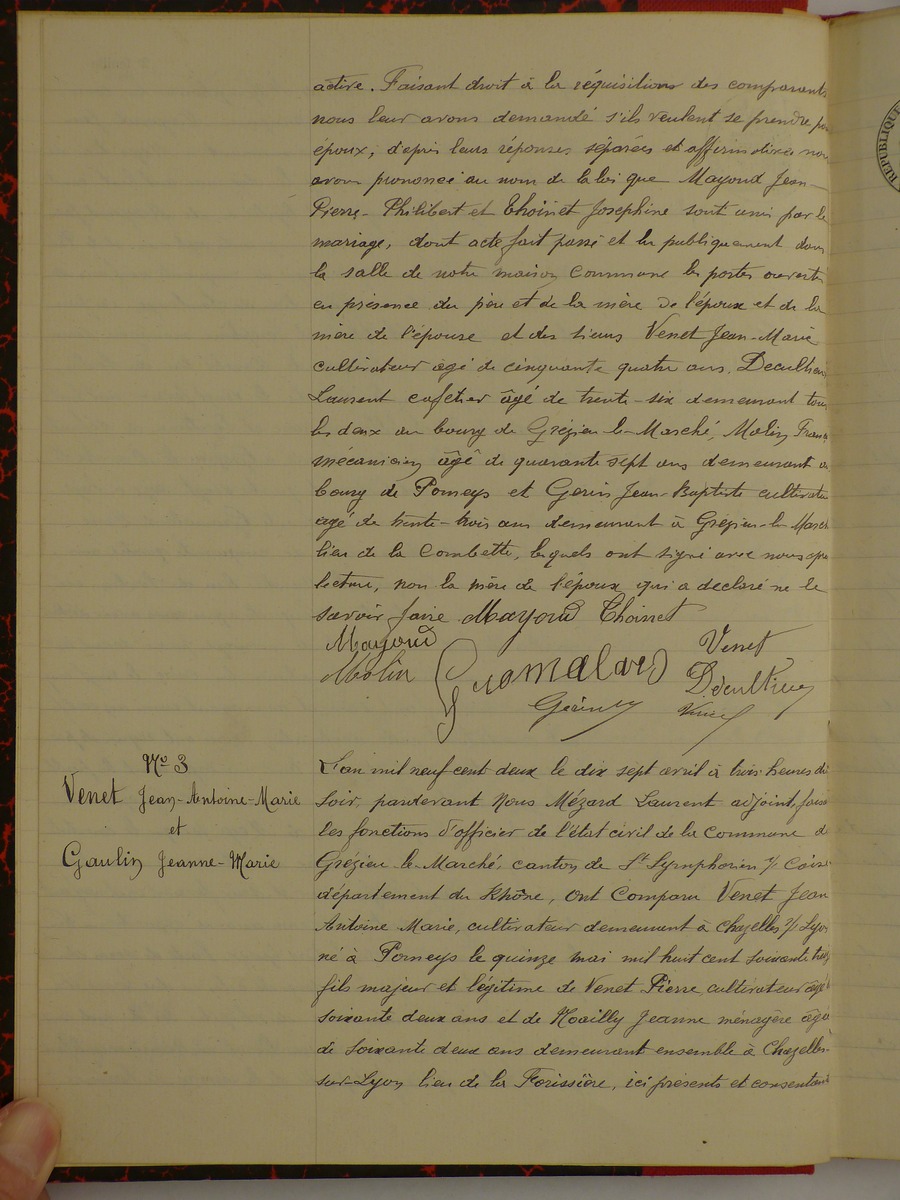 active. Faisant droit à la réquisition des comparants
nous leur avons demandé s'ils veulent se prendre pour
époux, d'après leurs réponses séparées et affirmatives nous
avons prononcé au nom de la loi que Mayoud Jean-
Pierre-Philibert et Thoinet Joséphine sont unis par le
mariage, dont acte fait passé et lu publiquement dans
la salle de notre maison Commune les portes ouvertes
en présence du père et de la mère de l'époux et de la
mère de l'épouse et des sieurs Venet Jean-Marie
cultivateur âgé de cinquante quatre ans, Decultieu
Laurent cafetier âgé de trente-six demeurant tous
les deux au bourg de Grézieu-le-Marché, Molin Franç
mécanicien âgé de quarante sept ans demeurant au
bourg de Pomeys et Gerin Jean-Baptiste cultivateur
âgé de trente-trois ans demeurant à Grézieu-le-March
lieu de la Combette, lesquels ont signé avec nous après
lecture, non la mère de l'époux qui a déclaré ne le
savoir faire Mayoud Thoinet
Mayoud Venet
Molin Décultieu
Gérin
N° 3
Venet Jean-Antoine-Marie
et
Gaulin Jeanne-Marie
L'an mil neuf cent deux le dix sept avril à trois heures du
soir, pardevant Nous Mézard Laurent adjoint, faisa
les fonctions d'officier de l'état civil de la Commune de
Grézieu-le-Marché, canton de St Symphorien s/ Coise
département du Rhône, Ont Comparu Venet Jean
Antoine Marie, cultivateur demeurant à Chazelles s/ Lyon
né à Pomeys le quinze mai mil huit cent soixante
fils majeur et légitime de Venet Pierre cultivateur âgé
soixante deux ans et de Noailly Jeanne ménagère âgée
de soixante deux ans demeurant ensemble à Chazelles-
sur-Lyon lieu de la Forissière, ici présents et consentant
RÉPUBLIQUE